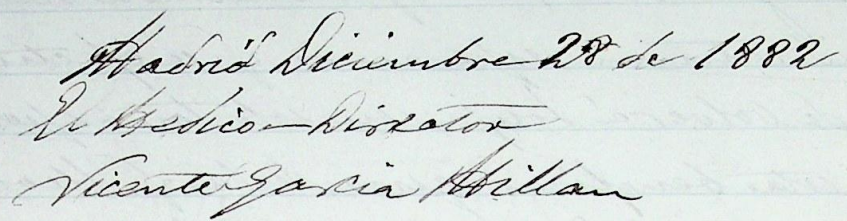 Madrid Diciembre 28 de 1882
El Medico-Director
Vicente Garcia Millan